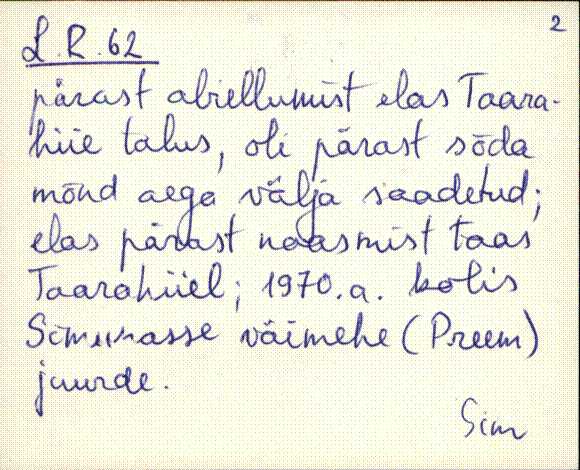 2
L.R.62
pärast abiellumist elas Taara-
hiie talus, oli pärast sõda
mõnd aega välja saadetud;
elas pärast naasmist taas
Taarahiiel; 1970.a. kolis
Simunasse väimehe (Preem)
juurde.
Sim